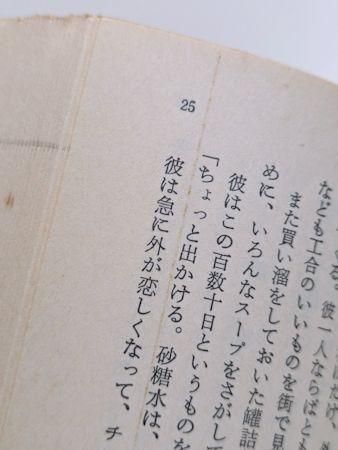 25
なども工合のいいものを街で見
また買い溜をしておいた罐詰
めに、いろんなスープをさがして
彼はこの百数十日というものを
「ちょっと出かける。砂糖水は、
彼は急に外が恋しくなって、チ